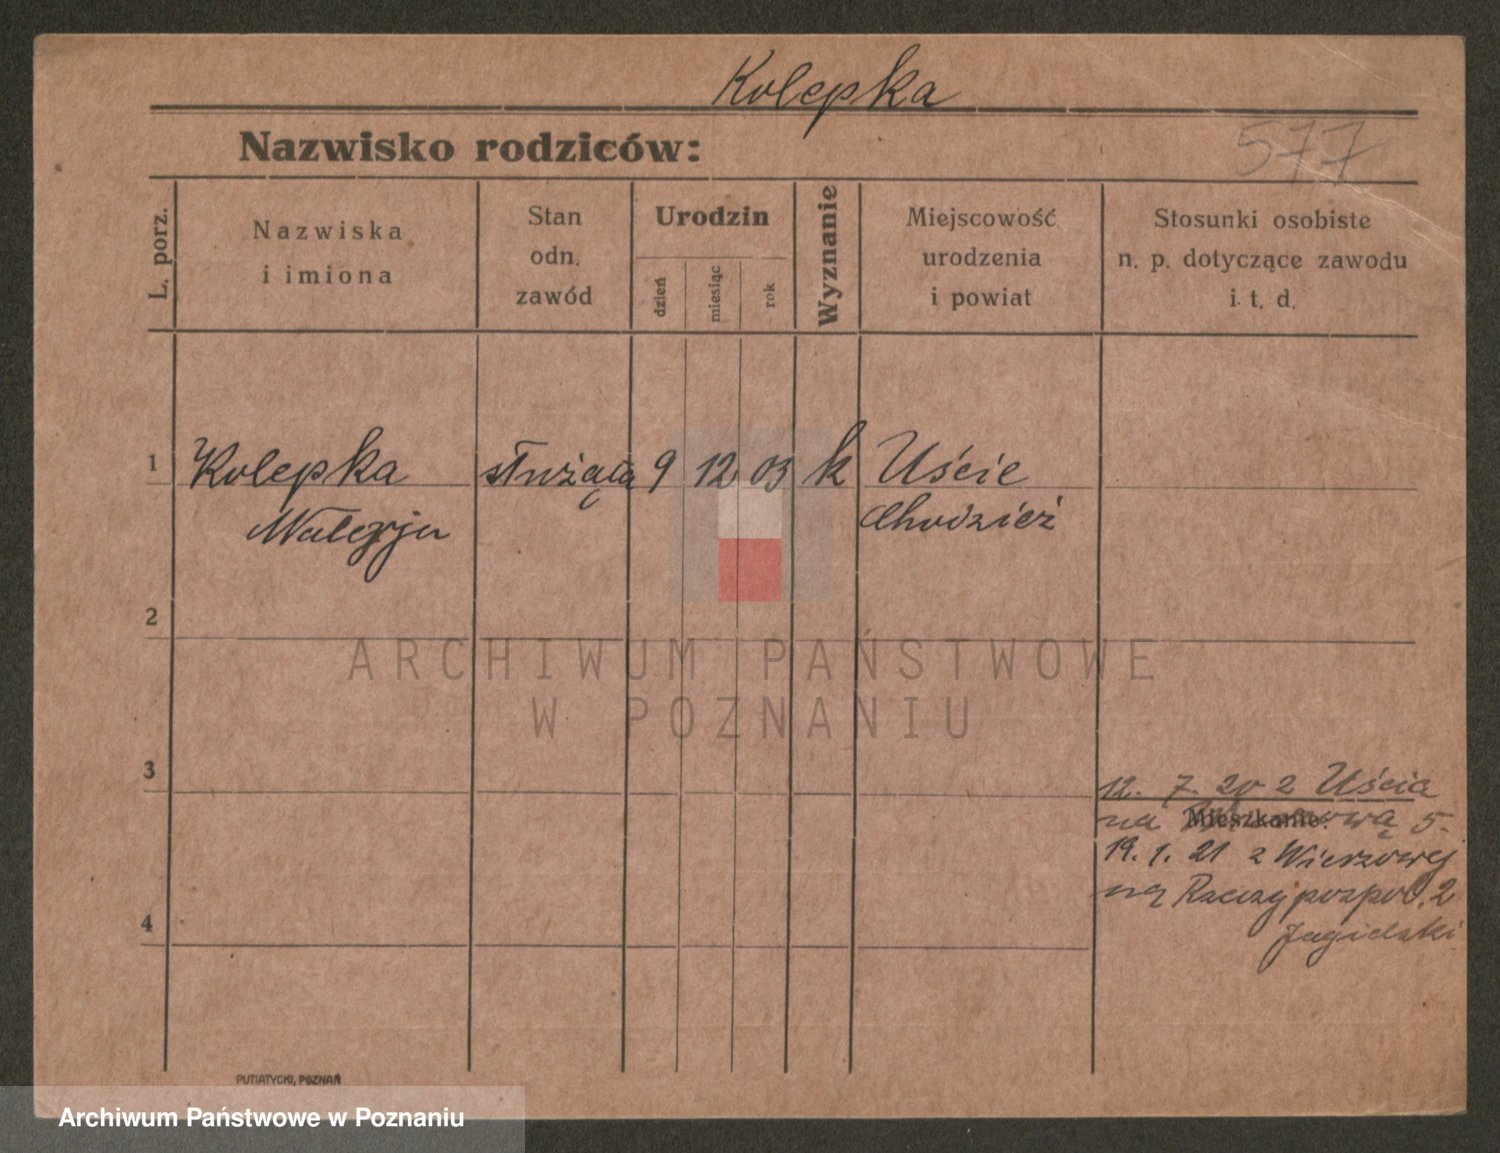 Kolepka
Nazwisko rodziców:
577
L. porz.
Nazwiska
i imiona
Stan
odn.
zawód
Urodzin
dzień
miesiąc
rok
Wyznanie
Miejscowość
urodzenia
i powiat
Stosunki osobiste
n. p. dotyczące zawodu
i. t. d.
1 Kolepka służąca 9 12 03 k Uście
Walerja Chodzież
2
3
12. 7. 20 z Uścia
Mieszkanie.
na 5.
19. 1. 21 z Wierzowej
na Rzeczypospol. 2
Jagielski
4
ARCHIWUM PAŃSTWOWE
W POZNANIU
PUTIATYCKI, POZNAŃ
Archiwum Państwowe w Poznaniu